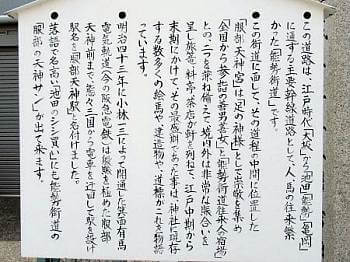 この道路は、江戸時代「大坂」から「池田」「能勢」「亀岡」
に通ずる主要幹線道路として、人馬の往来繁
かった「能勢街道」です。
この街道に面して、その道程の中間に位置した
服部天神宮は「足の神様」として崇敬を集め
全国から参詣の善男善女と「能勢街道往来人の宿場」
との、二つを兼ね備えて境内外は非常な賑合いを
呈し旅篭、料亭、茶店が軒を列ねて、江戸中期から
末期にかけて、その最盛期であった事は、神社に現存
する数多くの絵馬や、建造物や、道標がこれを物語
っています。
明治四十三年に小林一三によって開通した箕面有馬
電気軌道(今の阪急電鉄)は賑験を極めた服部
天神前まで、態々三国から電車を迂回して駅を設け
駅名を「服部天神駅」と名付けました。
落語で名高い「池田のシシ買い」にも能勢街道の
「服部の天神サン」が出て来ます。